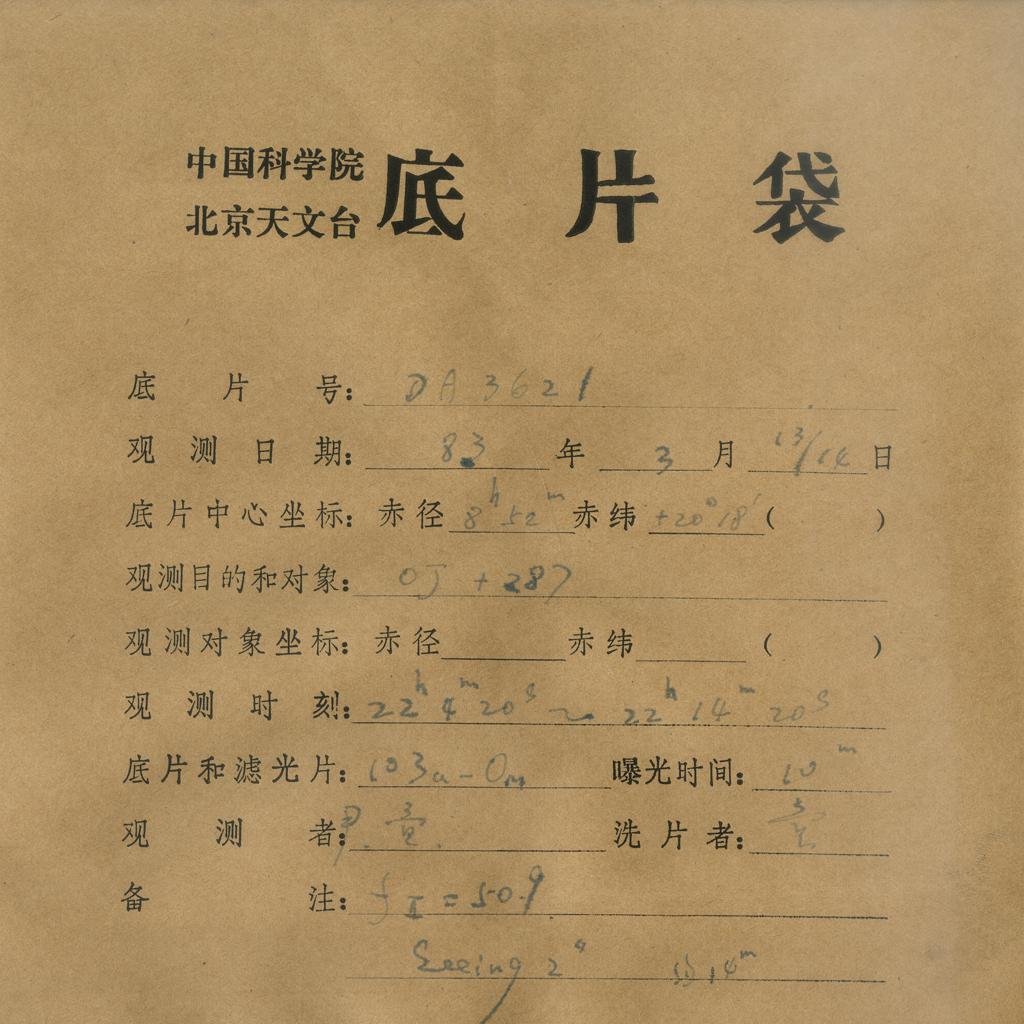 中国科学院
北京天文台
底片袋
底片号: DA 3621
观测日期: 83 年 3 月 13/14 日
底片中心坐标: 赤径 8h 52m 赤纬 +20°18′ ( )
观测目的和对象: OJ +287
观测对象坐标: 赤径 赤纬 ( )
观测时刻: 22h 4m 20s ~ 22h 14m 20s
底片和滤光片: 103a-O 曝光时间: 10m
观测者: 洗片者:
备注: = 50.9
Seeing 2" 14m